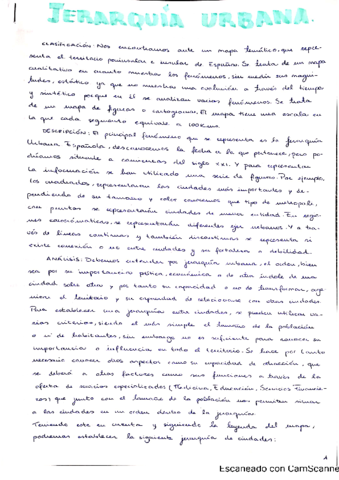 JERARQUÍA URBANA.
CLASIFICACIÓN: Nos encontramos ante un mapa temático, que repre-
senta el territorio peninsular e insular de España. Se trata de un mapa
cualitativo en cuanto muestra los fenómenos, sin medir sus magni-
tudes, estático ya que no muestra una evolución a través del tiempo
y sintético porque en él se analizan varios fenómenos. Se trata
de un mapa de figuras o cartograma. El mapa tiene una escala en
la que cada segmento equivale a 100km.
DESCRIPCIÓN: El principal fenómeno que se representa es la jerarquía
Urbana Española, desconocemos la fecha a la que pertenece, pero po-
dríamos atenderle a comienzos del siglo XXI. Y para representar
la información se han utilizado una serie de figuras. Por ejemplo,
los cuadrados, representarían las ciudades más importantes y de-
pendiendo de su tamaño y color sabremos que tipo de metrópoli,
con puntos se representarían ciudades de menor entidad. En regio-
nes se representarían diferentes ejes urbanos. Y a tra-
vés de líneas continuas y también discontinuas se representa si
existe conexión o no entre ciudades y su fortaleza o debilidad.
ANÁLISIS: Debemos entender por jerarquía urbana, el orden, bien
sea por su importancia política, económica o de otra índole de una
ciudad sobre otra y por tanto su capacidad o no de transformar, orga-
nizar el territorio y su capacidad de relacionarse con otras ciudades.
Para establecer una jerarquía entre ciudades, se pueden utilizar va-
rios criterios, siendo el más simple el tamaño de la población
o nº de habitantes, sin embargo no es suficiente para conocer su
importancia e influencia en todo el territorio. Se hace por tanto
necesario conocer otros aspectos como su capacidad de atracción, que
se deberá a otros factores como sus funciones a través de la
oferta de servicios especializados (Medicina, Educación, Servicios Financie-
ros) que junto con el tamaño de la población nos permiten situar
a las ciudades en un orden dentro de la jerarquía.
Teniendo esto en cuenta y siguiendo la leyenda del mapa,
podremos establecer la siguiente jerarquía de ciudades:
Escaneado con CamScanne